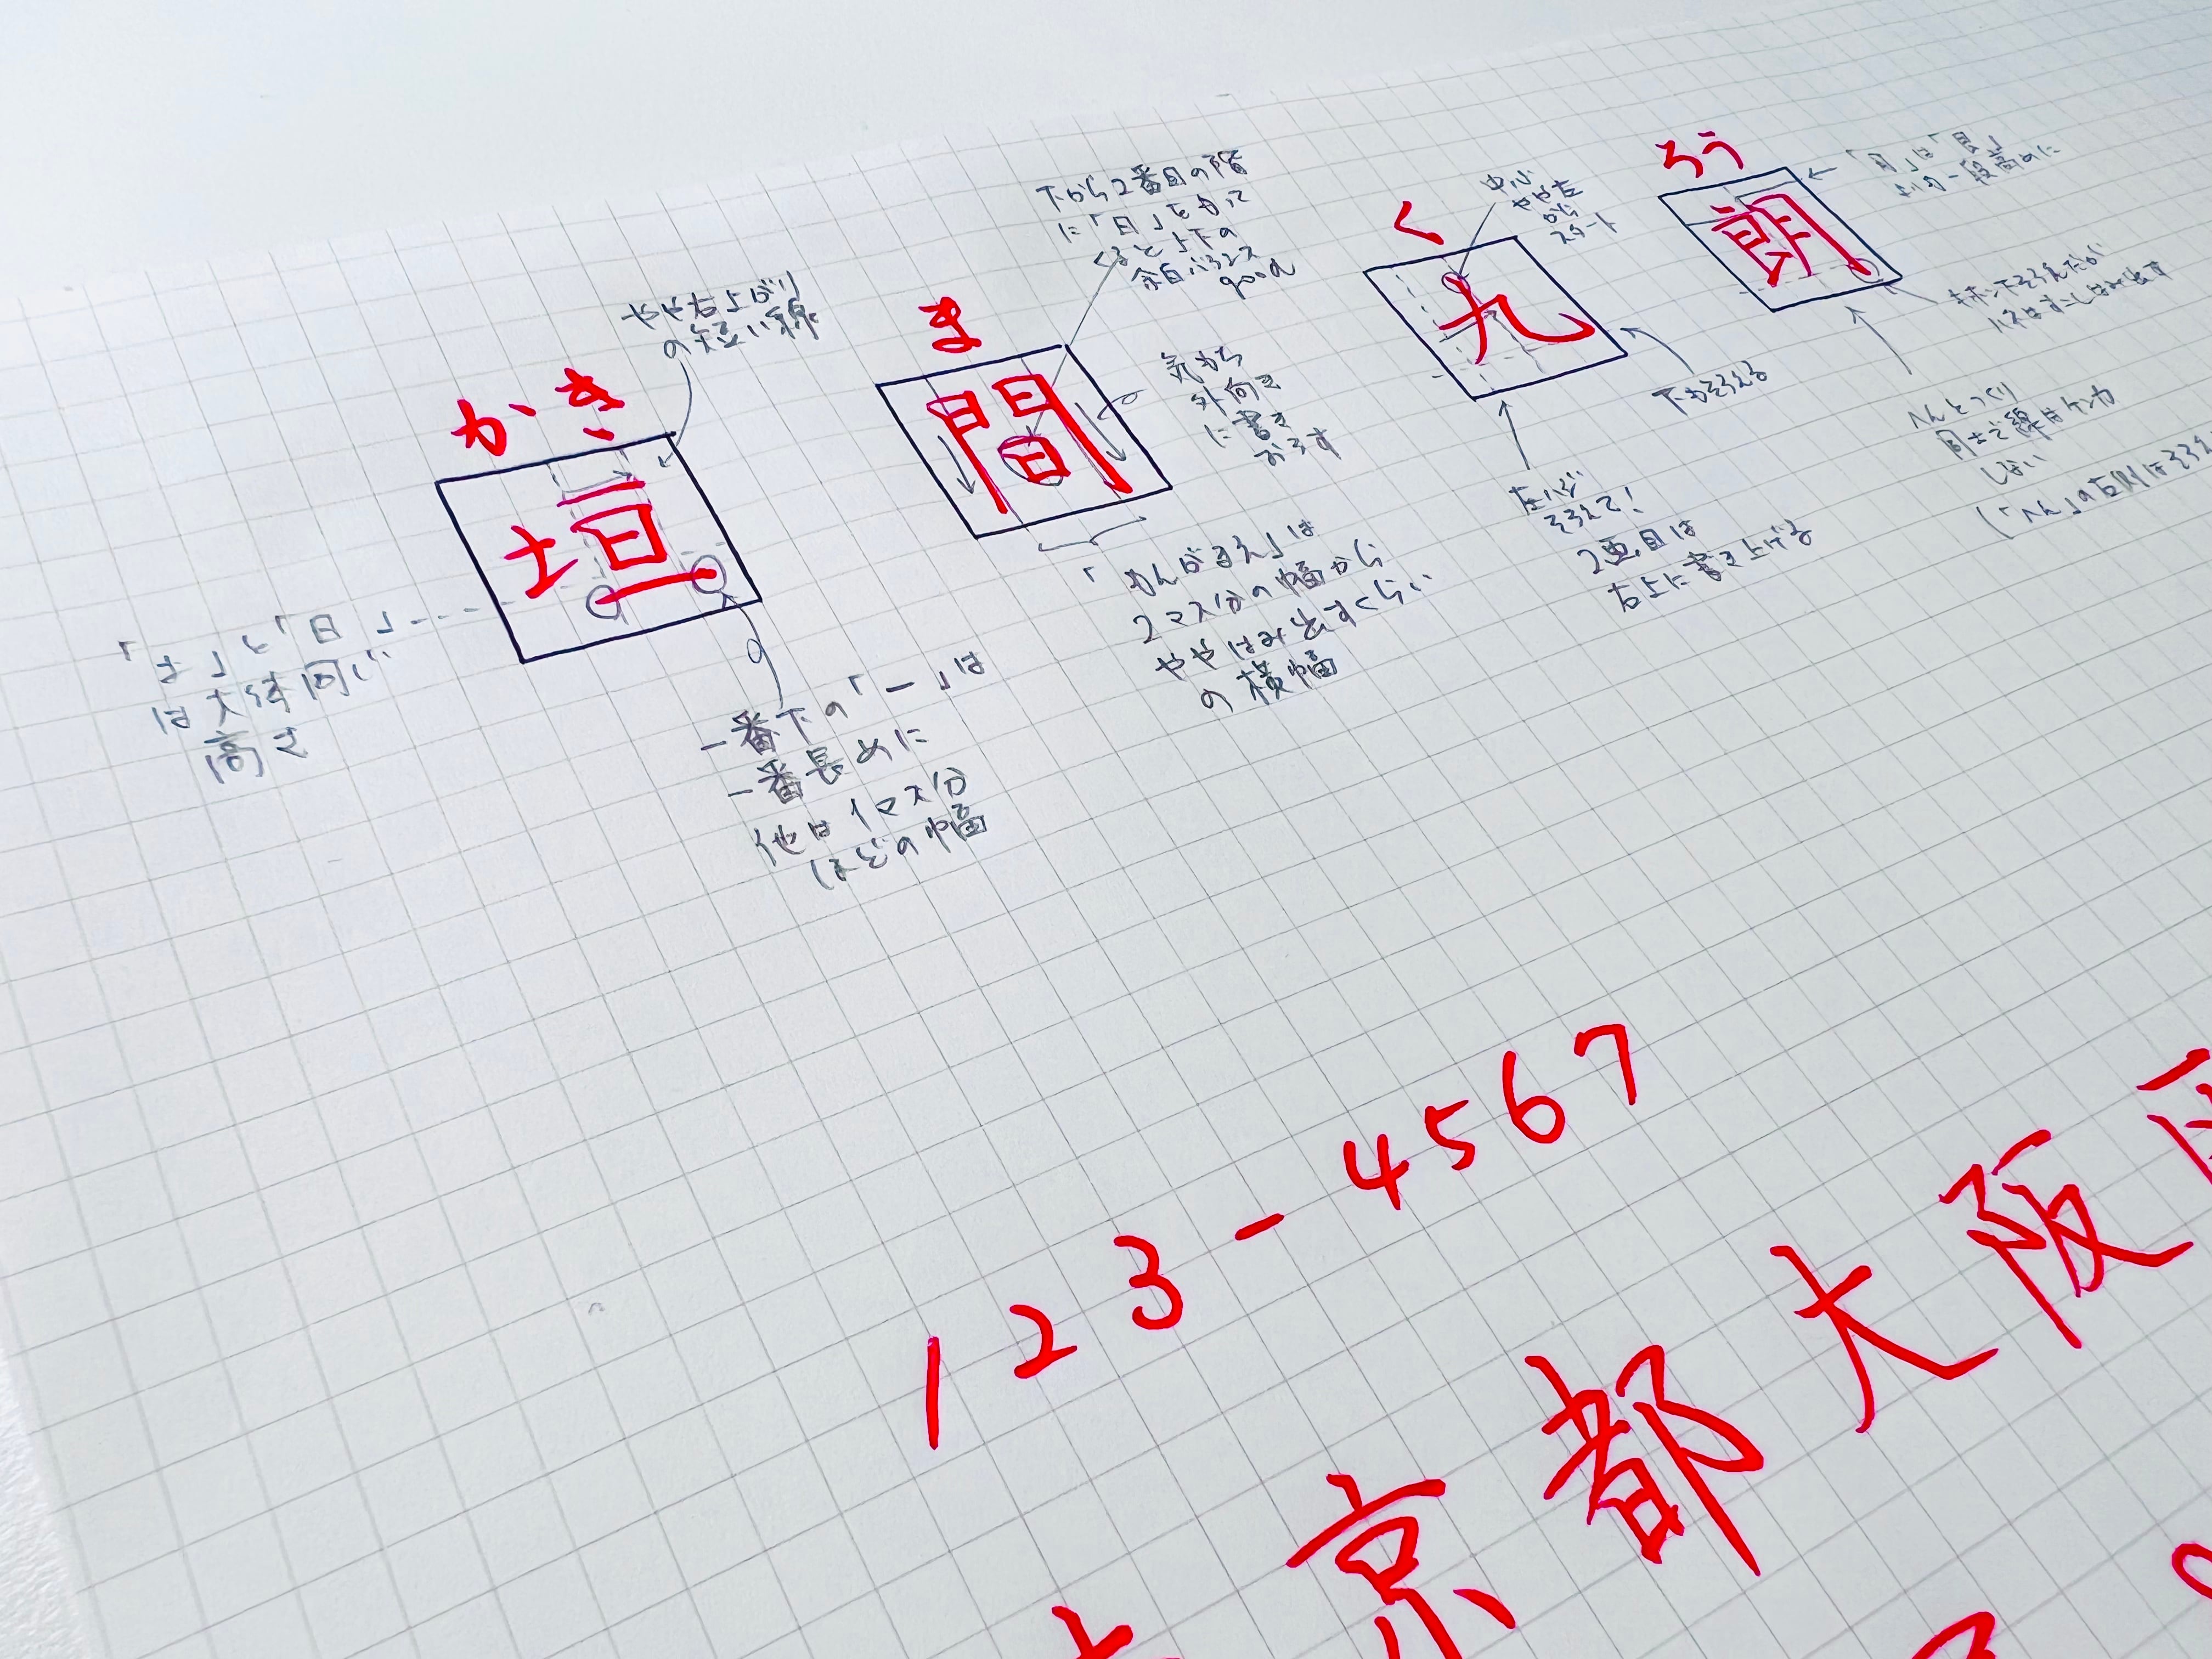 かき
垣
やや右上がり
の短い線
「土」と「日」
は大体同じ
高さ
一番下の「一」は
一番長めに
他は1マス分
ほどの幅
ま
間
下から2番目の
に「日」を
くると上下の
余白バランス
good
気もち
外向き
に書き
おろす
「もんがまえ」は
2マス分の幅から
ややはみ出すくらい
の横幅
く
九
中心
やや左
から
スタート
下もそろえる
左ハジ
そろえて!
2画目は
右上に書き上げる
ろう
朗
「月」は「良」
より一段高めに
キホン下そろえだが
ハネはすこしはみ出す
へんとつくり
同士で線はケンカ
しない
(「へん」の右側はそろえ
123-4567
京都大阪